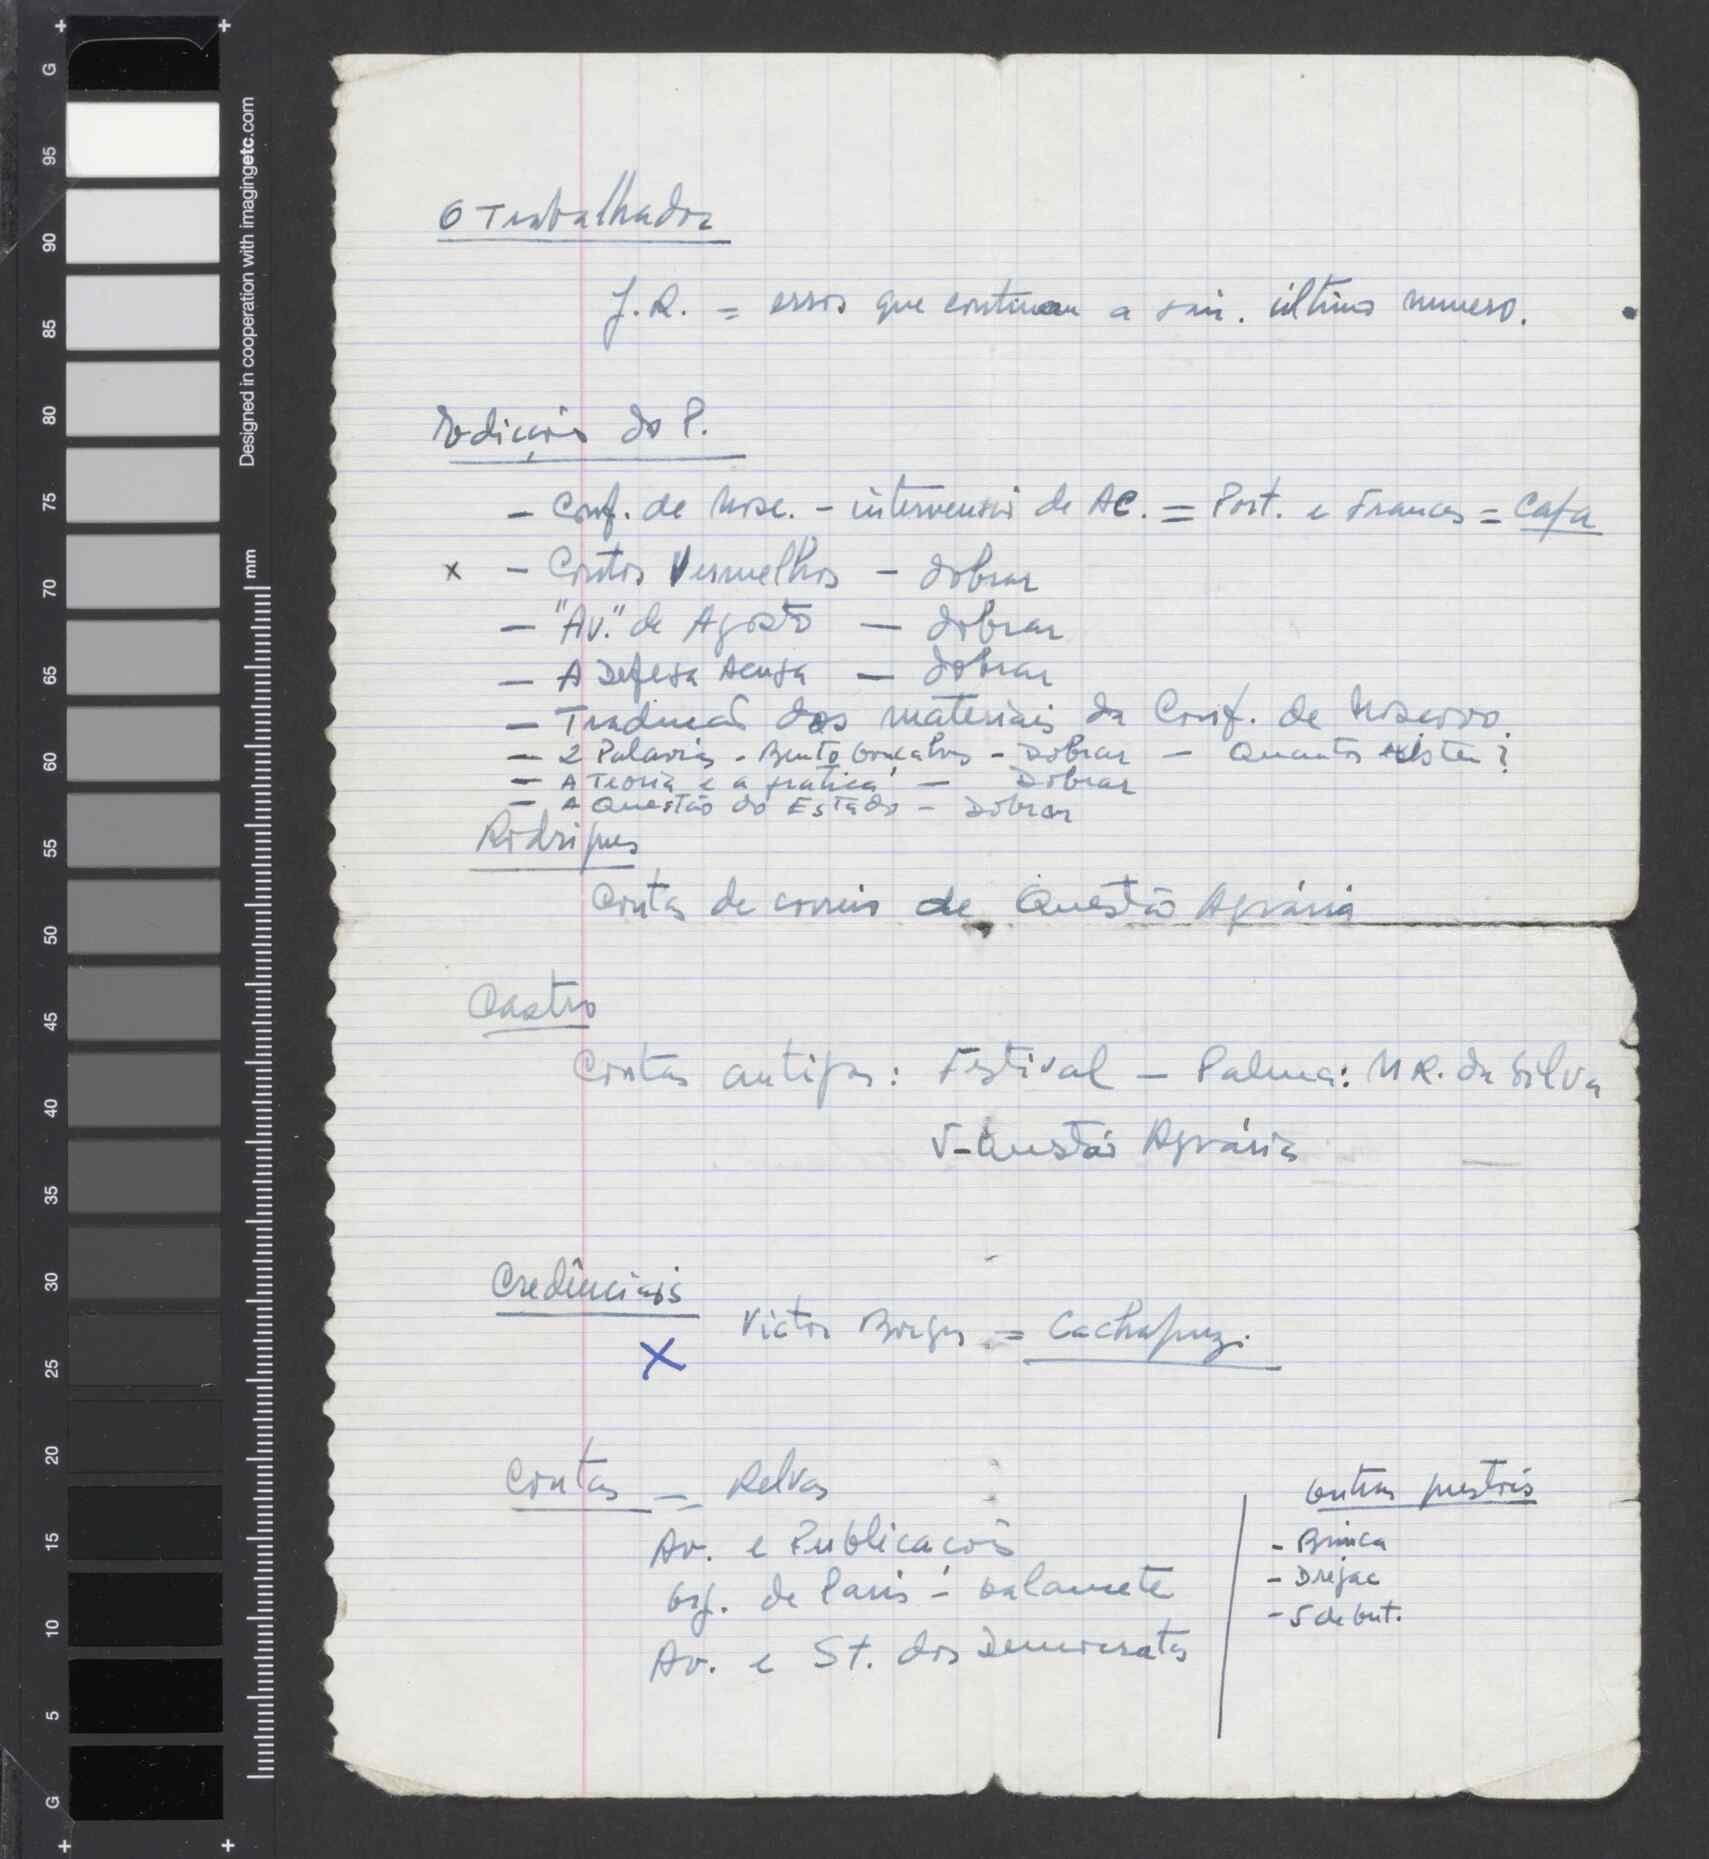 O Trabalhador
J.R. = erros que continuam a sair. último numero.
Edições do P.
- Conf. de Mosc. - intervensão de AC. = Port. e Frances = Capa
x - Contos Vermelhos - dobrar
- "Av." de Agosto - dobrar
- A Defesa Acusa - dobrar
- Tradução dos materiais da Conf. de Moscovo.
- 2 Palavras - Bento Gonçalves - Dobrar - Quantos existem?
- A Teoria e a pratica - Dobrar
- A Questão do Estado - Dobrar
Rodrigues
Contas de correio de Questão Agrária
Castro
Contas antigas: Festival - Palma: M R. da Silva
V-Questão Agrária
Credênciais
X Victor Borges = Cachapuz.
Contas = Relvas
Av. e Publicacões
Org. de Paris - Calamete
Av. e St. dos Democratas
outras questões
- Brinca
- Drejac
- 5 de Out.
G 95 90 85 80 75 70 65 60 55 50 45 40 35 30 25 20 15 10 5 G
Designed in cooperation with imagingetc.com
mm